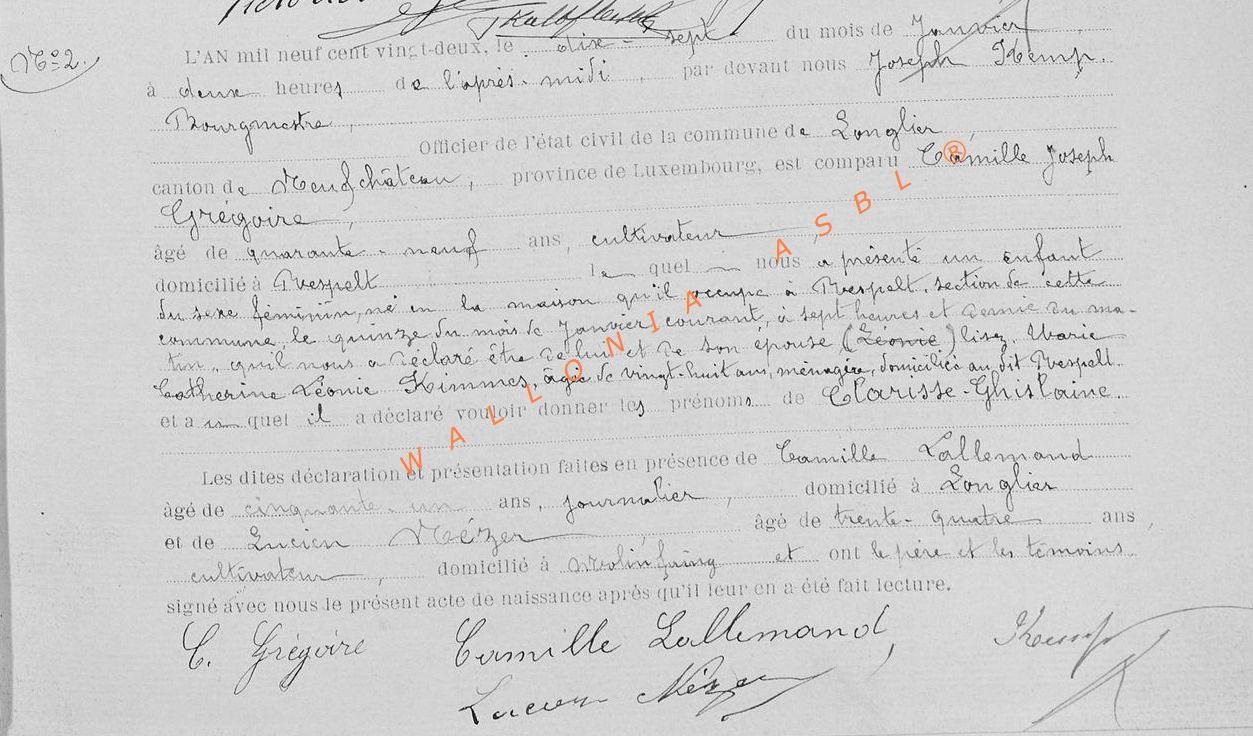 No 2.
L'AN mil neuf cent vingt-deux, le dix-sept du mois de Janvier,
à deux heures de l'après-midi, par devant nous Joseph Kemp.
Bourgmestre,
Officier de l'état civil de la commune de Longlier,
canton de Neufchâteau, province de Luxembourg, est comparu Camille Joseph
Grégoire,
âgé de quarante-neuf ans, cultivateur,
domicilié à Respelt lequel nous a présenté un enfant
du sexe féminin, né en la maison qu'il occupe à Respelt, section de cette
commune, le quinze du mois de Janvier courant, à sept heures et demie du ma-
tin, qu'il nous a déclaré être de lui et de son épouse (Léonie) lisez Marie
Catherine Léonie Kimmes, âgée de vingt-huit ans, ménagère, domiciliée au dit Respelt.
et auquel il a déclaré vouloir donner les prénoms de Clarisse-Ghislaine.
Les dites déclaration et présentation faites en présence de Camille Lallemand
âgé de cinquante-un ans, journalier, domicilié à Longlier
et de Lucien Mézer, âgé de trente-quatre ans,
cultivateur, domicilié à Molinfaing et ont le père et les témoins
signé avec nous le présent acte de naissance après qu'il leur en a été fait lecture.
C. Grégoire Camille Lallemand, Kemp
Lucien Mézer
WALLONIA ASBL ®